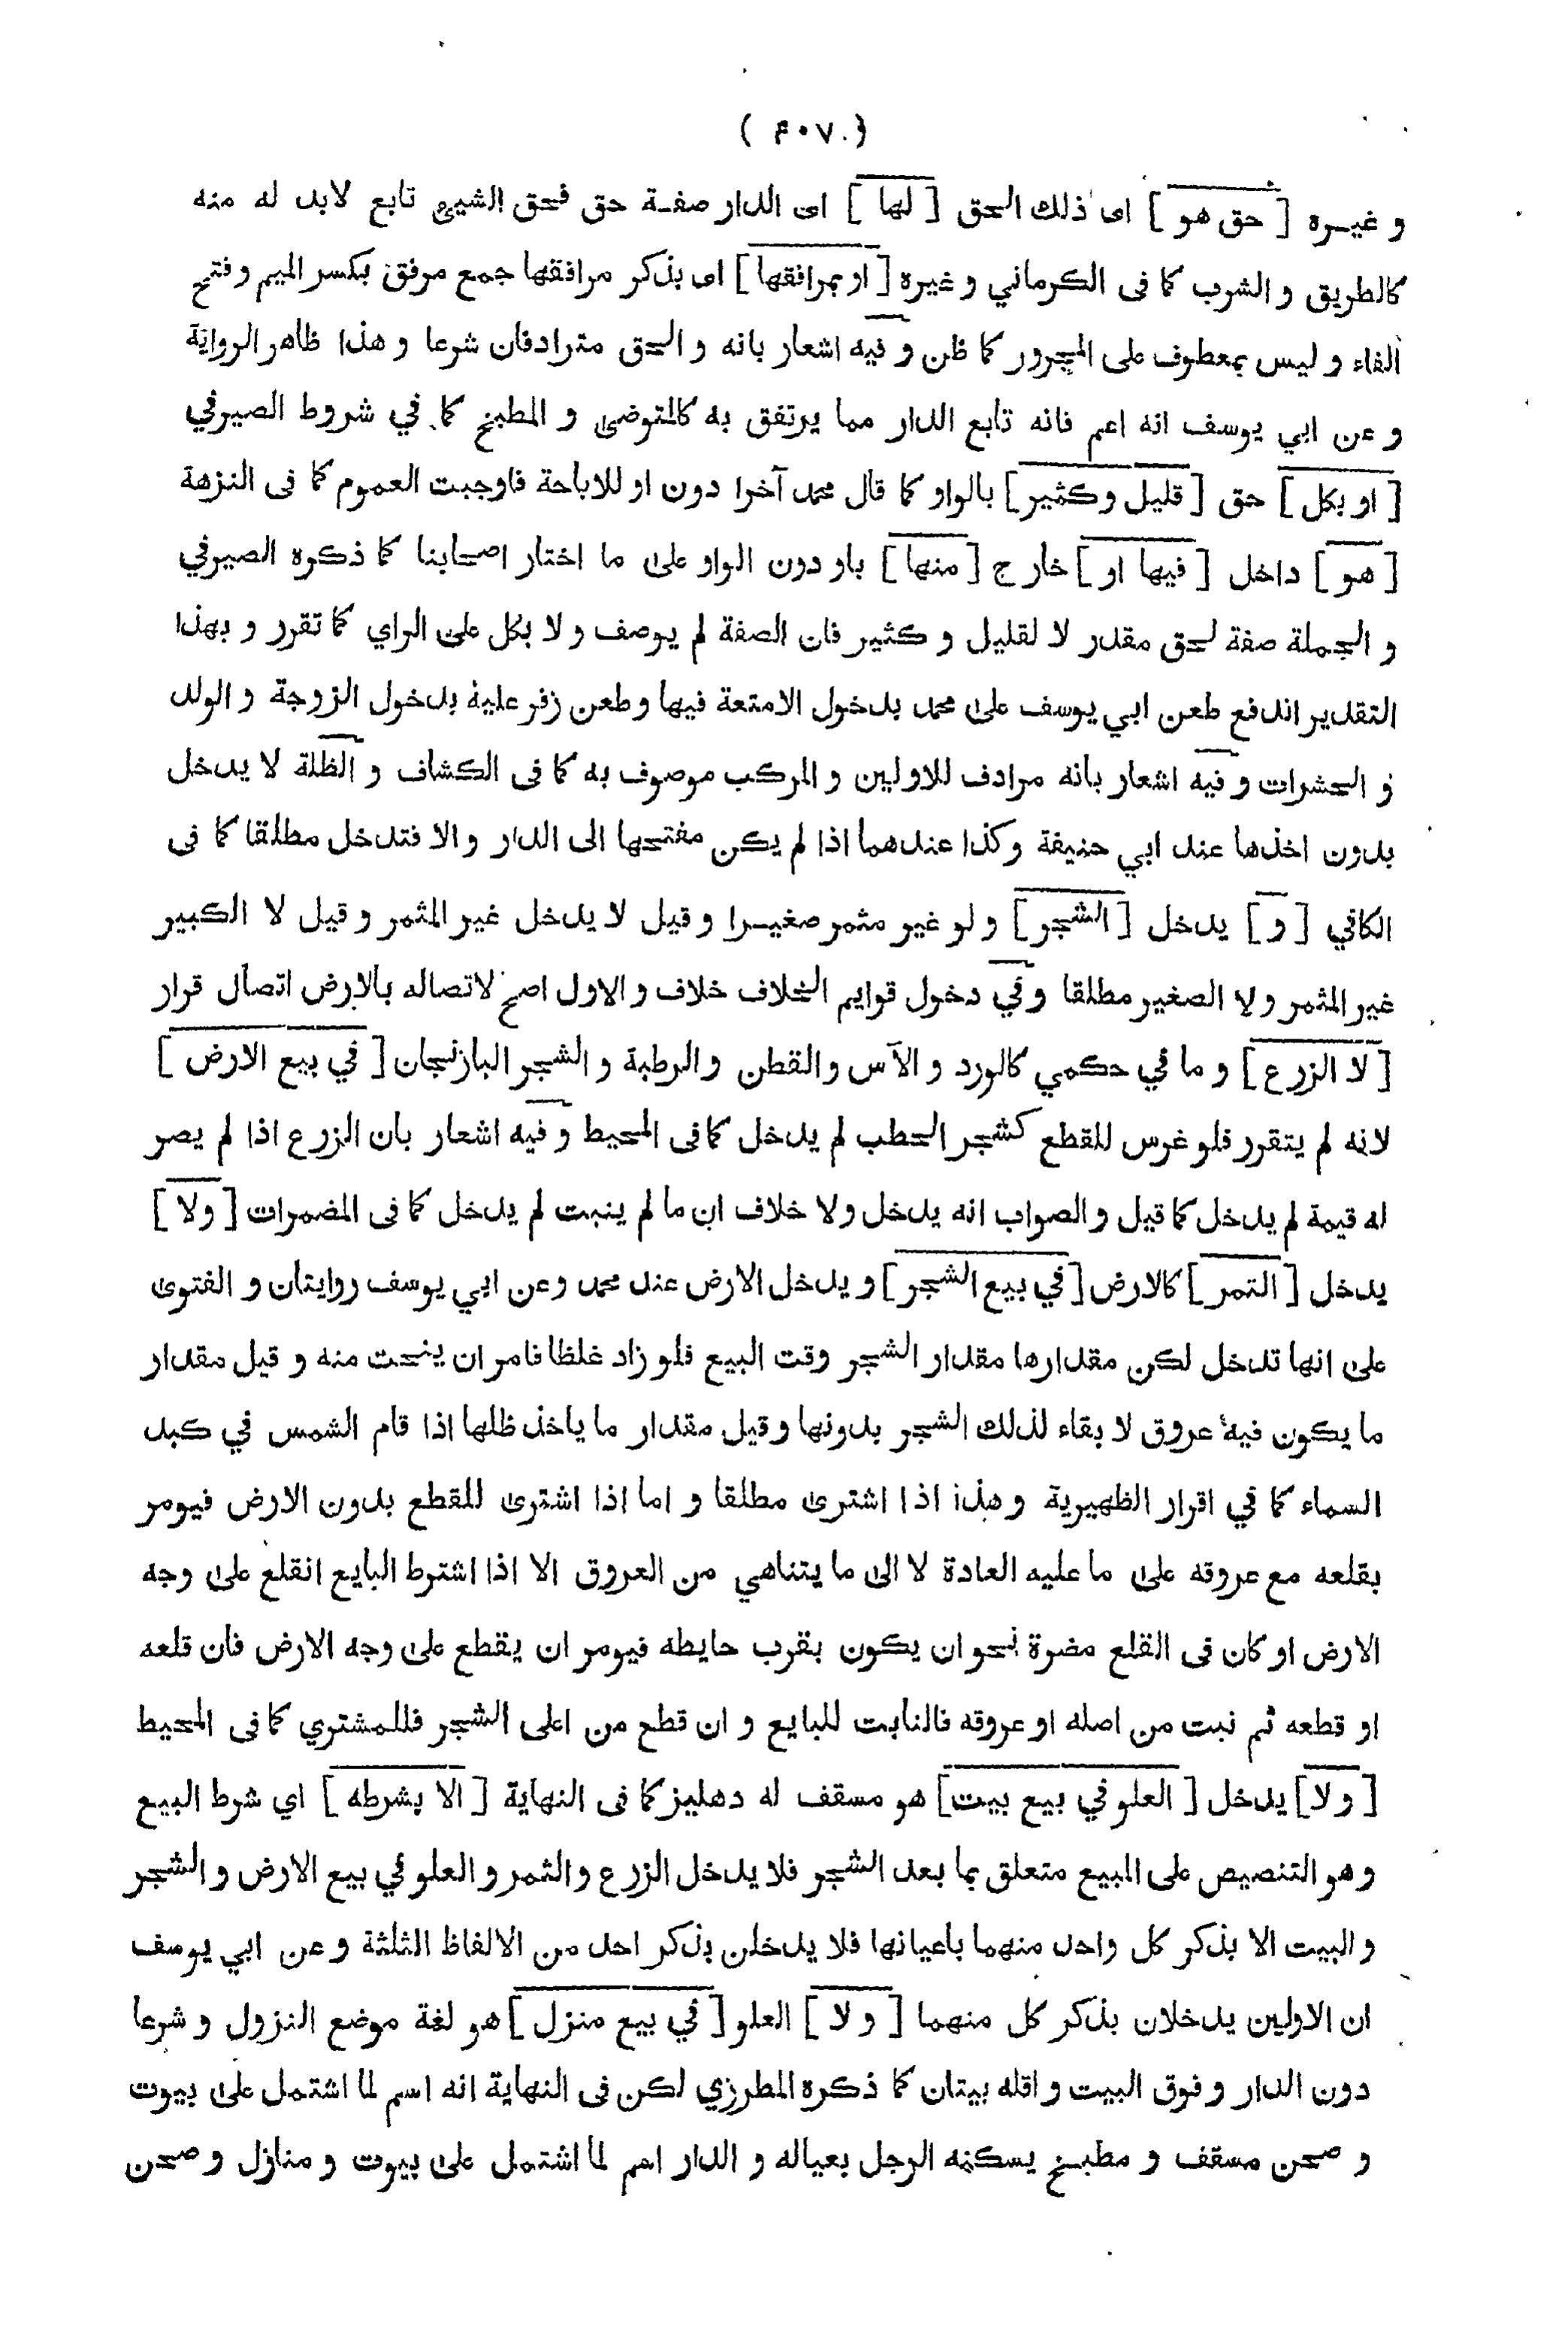 ( ۴۰۷ )
و غيره [ حق هو ] اى ذلك الحق [ لها ] اى الدار صفة حق فحق الشيئ تابع لابد له منه
كالطريق و الشرب كما فى الكرماني و غيره [ او بمرافقها ] اى بذكر مرافقها جمع مرفق بكسر الميم و فتح
الفاء و ليس بمعطوف على المجرور كما ظن و فيه اشعار بانه و الحق مترادفان شرعا و هذا ظاهر الرواية
و عن ابي يوسف انه اعم فانه تابع الدار مما يرتفق به كالمتوضى و المطبخ كما في شروط الصيرفي
[ او بكل ] حق [ قليل و كثير ] بالواو كما قال محمد آخرا دون او للاباحة فاوجبت العموم كما فى النزهة
[ هو ] داخل [ فيها او ] خارج [ منها ] باو دون الواو على ما اختار اصحابنا كما ذكره الصيرفي
و الجملة صفة لحق مقدر لا لقليل و كثير فان الصفة لم يوصف و لا بكل على الراي كما تقرر و بهذا
التقدير اندفع طعن ابي يوسف على محمد بدخول الامتعة فيها و طعن زفر عليه بدخول الزوجة و الولد
و الحشرات و فيه اشعار بانه مرادف للاولين و المركب موصوف به كما فى الكشاف و الظلة لا يدخل
بدون اخذها عند ابي حنيفة و كذا عندهما اذا لم يكن مفتحها الى الدار و الا فتدخل مطلقا كما فى
الكافي [ و ] يدخل [ الشجر ] و لو غير مثمر صغيرا و قيل لا يدخل غير المثمر و قيل لا الكبير
غير المثمر و لا الصغير مطلقا و في دخول قوايم الخلاف خلاف و الاول اصح لاتصاله بالارض اتصال قرار
[ لا الزرع ] و ما في حكمي كالورد و الآس و القطن و الرطبة و الشجر البازنجان [ في بيع الارض ]
لانه لم يتقرر فلو غرس للقطع كشجر الحطب لم يدخل كما فى المحيط و فيه اشعار بان الزرع اذا لم يصر
له قيمة لم يدخل كما قيل و الصواب انه يدخل و لا خلاف ان ما لم ينبت لم يدخل كما فى المضمرات [ ولا ]
يدخل [ التمر ] كالارض [ في بيع الشجر ] و يدخل الارض عند محمد و عن ابي يوسف روايتان و الفتوى
على انها تدخل لكن مقدارها مقدار الشجر وقت البيع فلو زاد غلظا فامر ان ينحت منه و قيل مقدار
ما يكون فيه عروق لا بقاء لذلك الشجر بدونها و قيل مقدار ما ياخذ ظلها اذا قام الشمس في كبد
السماء كما في اقرار الظهيرية و هذا اذا اشترى مطلقا و اما اذا اشترى للقطع بدون الارض فيومر
بقلعه مع عروقه على ما عليه العادة لا الى ما يتناهي من العروق الا اذا اشترط البايع انقلع على وجه
الارض او كان فى القلع مضرة نحو ان يكون بقرب حايطه فيومر ان يقطع على وجه الارض فان قلعه
او قطعه ثم نبت من اصله او عروقه فالنابت للبايع و ان قطع من اعلى الشجر فللمشتري كما فى المحيط
[ و لا ] يدخل [ العلو في بيع بيت ] هو مسقف له دهليز كما فى النهاية [ الا بشرطه ] اي شرط البيع
و هو التنصيص على المبيع متعلق بما بعد الشجر فلا يدخل الزرع و الثمر و العلو في بيع الارض و الشجر
و البيت الا بذكر كل واحد منهما باعيانها فلا يدخلن بذكر احد من الالفاظ الثلثة و عن ابي يوسف
ان الاولين يدخلان بذكر كل منهما [ و لا ] العلو [ في بيع منزل ] هو لغة موضع النزول و شرعا
دون الدار و فوق البيت و اقله بيتان كما ذكره المطرزي لكن فى النهاية انه اسم لما اشتمل على بيوت
و صحن مسقف و مطبخ يسكنه الرجل بعياله و الدار اسم لما اشتمل على بيوت و منازل و صحن